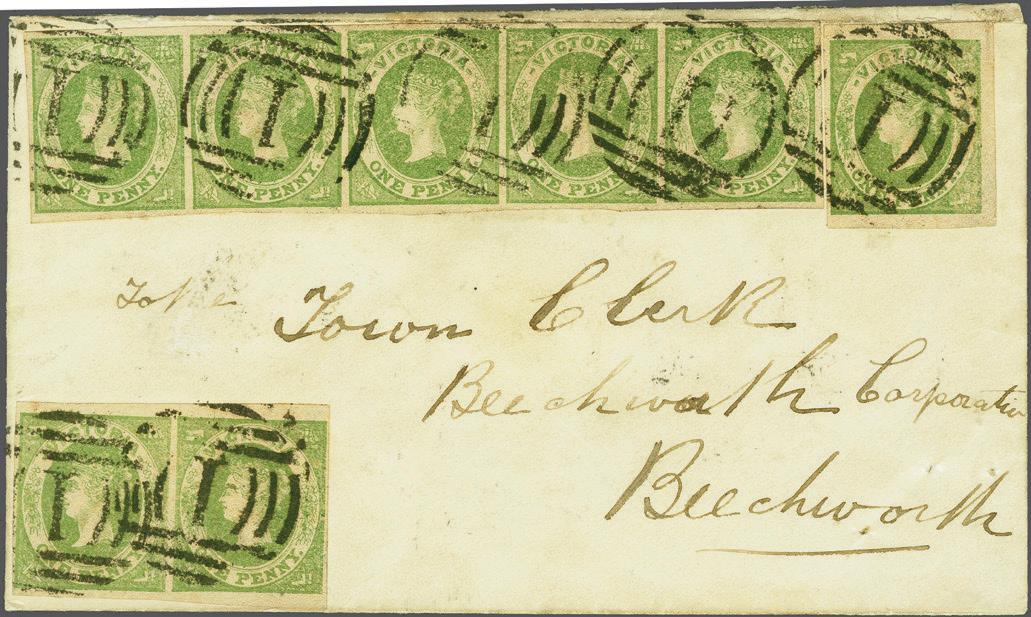 VICTORIA VICTORIA VICTORIA VICTORIA VICTORIA VICTORIA
ONE PENNY. ONE PENNY. ONE PENNY. ONE PENNY. ONE PENNY. ONE PENNY.
1 1 1
To the Town Clerk
Beechworth Corporation
Beechworth
VICTORIA VICTORIA
1 1
ONE PENNY. ONE PENNY.